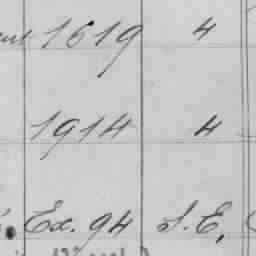 1619 4
1914 4
Ex. 94 S.E.